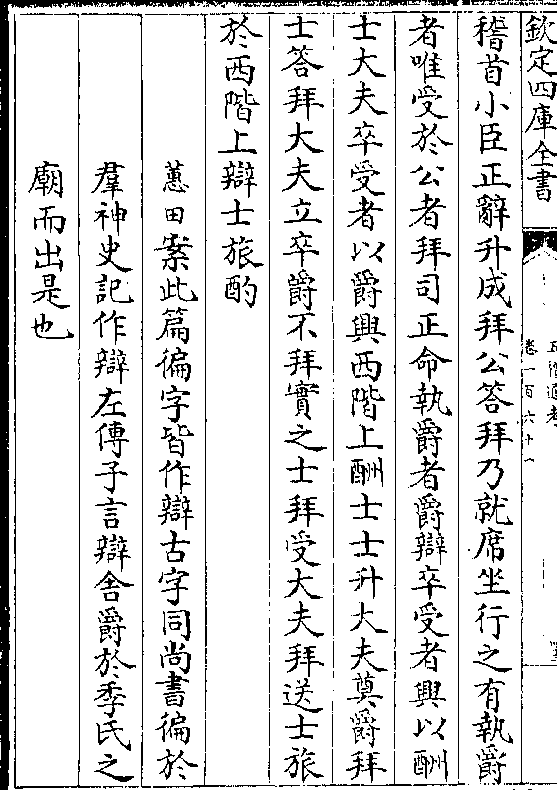 欽定四庫全書
稽首小臣正辭升成拜公答拜乃就席坐行之有執爵
者唯受於公者拜司正命執爵者爵辯卒受者興以酬
士大夫卒受者以爵興西階上酬士士升大夫奠爵拜
士答拜大夫立卒爵不拜實之士拜受大夫拜送士旅
於西階上辯士旅酌
蕙田案此篇徧字皆作辯古字同尚書徧於
羣神史記作辯左傳子言辯舍爵於季氏之
廟而出是也